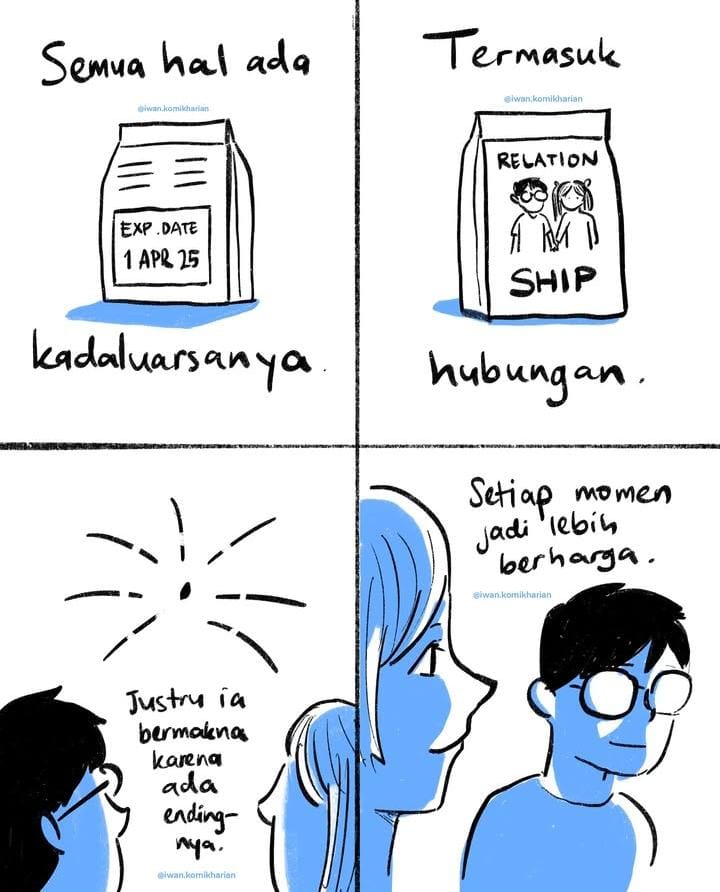 Semua hal ada
@iwan.komikharian
EXP. DATE
1 APR 25
kadaluarsanya.
Termasuk
@iwan.komikharian
RELATION
SHIP
hubungan.
Justru ia
bermakna
karena
ada
ending-
nya.
@iwan.komikharian
Setiap momen
jadi lebih
berharga.
@iwan.komikharian